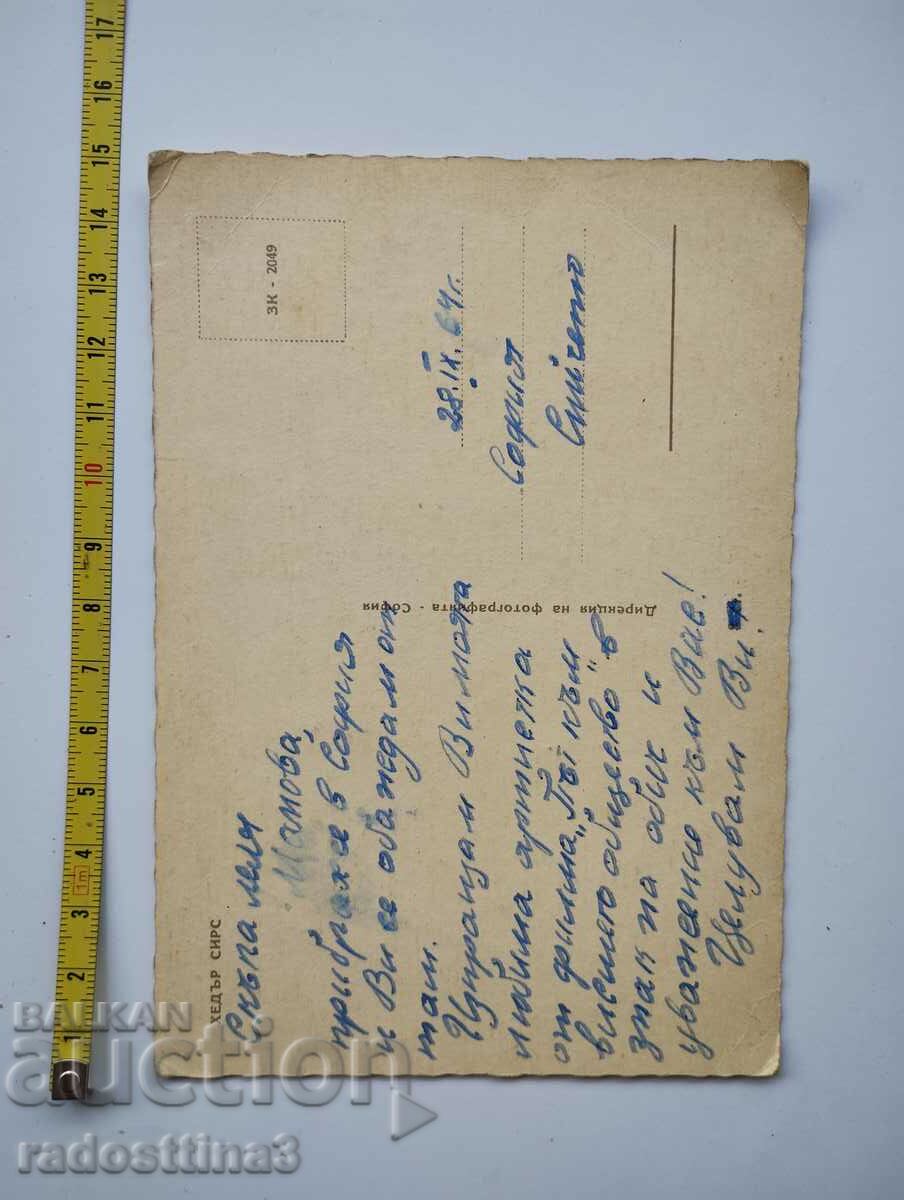 ХЕДЪР СИРС
ЗК - 2049
Скъпа леля
Мамова,
прибрахе в София
и Ви се обаждам от
там.
Изпращам Ви моята
любима артистка
от филма „Път към
висшето общество" в
знак на обич и
уважение към Вас!
Целувам Ви:
28.IX.64г.
София
Дирекция на фотографията - София
1 2 3 4 1m 5 6 7 8 9 10 11 12 13 14 15 16 17
BALKAN
auction
radosttina3